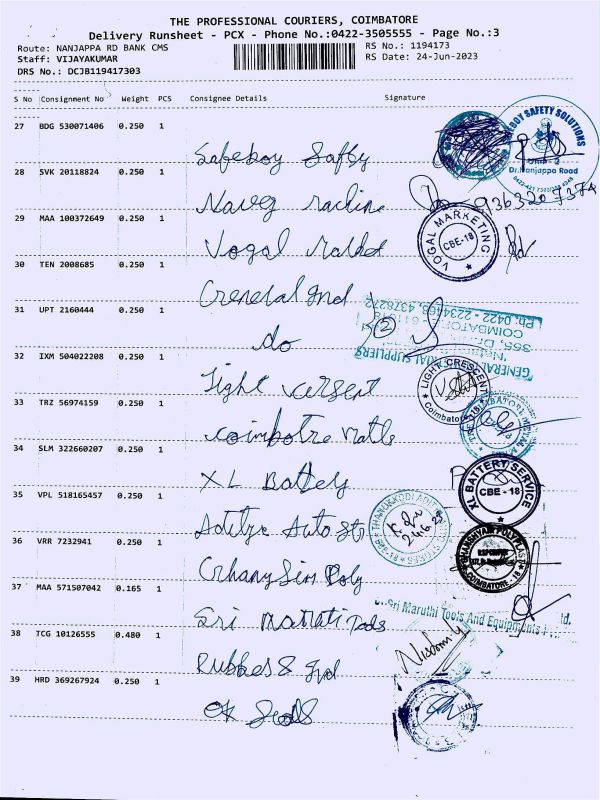 THE PROFESSIONAL COURIERS, COIMBATORE
Delivery Runsheet - PCX - Phone No.:0422-3505555 - Page No.:3
Route: NANJAPPA RD BANK CMS
RS No.: 1194173
Staff: VIJAYAKUMAR
RS Date: 24-Jun-2023
DRS No.: DCJB119417303
S No Consignment No Weight PCS Consignee Details Signature
27 BDG 530071406 0.250 1
Safeboy Safty
SAFETY SOLUTIONS
Dr.Nanjappa Road
28 SVK 20118824 0.250 1
29 MAA 100372649 0.250 1
Vogal Market
VOGAL MARKETING
CBE-18
30 TEN 2008685 0.250 1
General Ind
31 UPT 2160444 0.250 1
do
2
Ph: 0422 - 2234468, 4378272
COIMBATOR
355, Dr.
GENERAL
SUPPLIERS
32 IXM 504022208 0.250 1
Light
LIGHT CRESCENT
Coimbatore-18
33 TRZ 56974159 0.250 1
coimbotre
34 SLM 322660207 0.250 1
XL Battery
XL BATTERY SERVICE
CBE - 18
35 VPL 518165457 0.250 1
Aditya Auto Str
36 VRR 7232941 0.250 1
GHANSHYAM POLYPLAST
COIMBATORE - 18
37 MAA 571507042 0.165 1
Sri Maruti Tools
Sri Maruthi Tools And Equipments
38 TCG 10126555 0.480 1
Rubbes & Ind
39 HRD 369267924 0.250 1
OK Seals